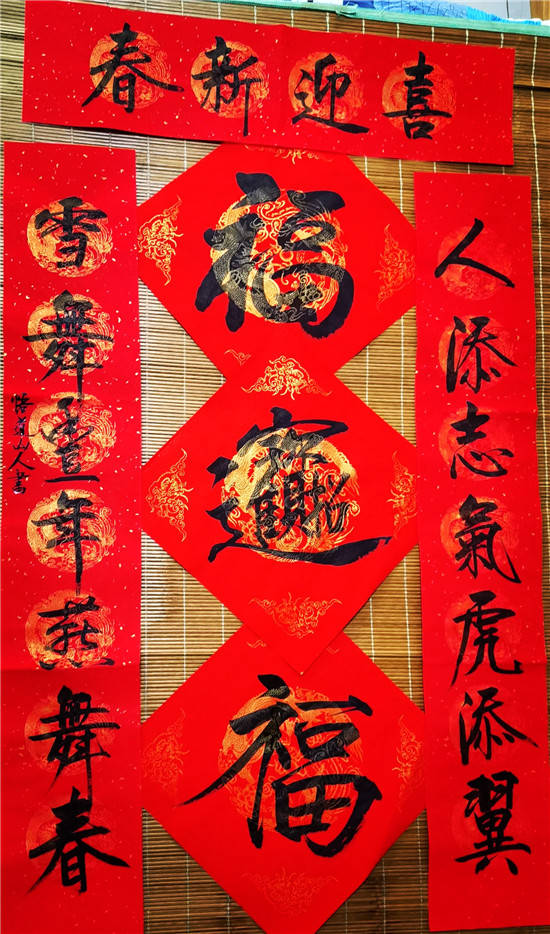 喜迎新春
人添志氣虎添翼
雪舞豐年燕舞春
悟道山人書
福
招財進寶
福